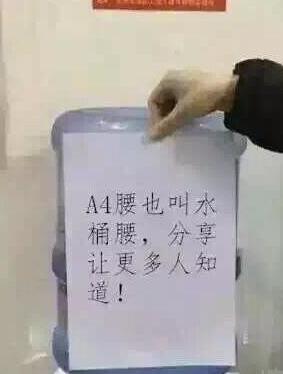 A4腰也叫水
桶腰，分享
让更多人知
道！